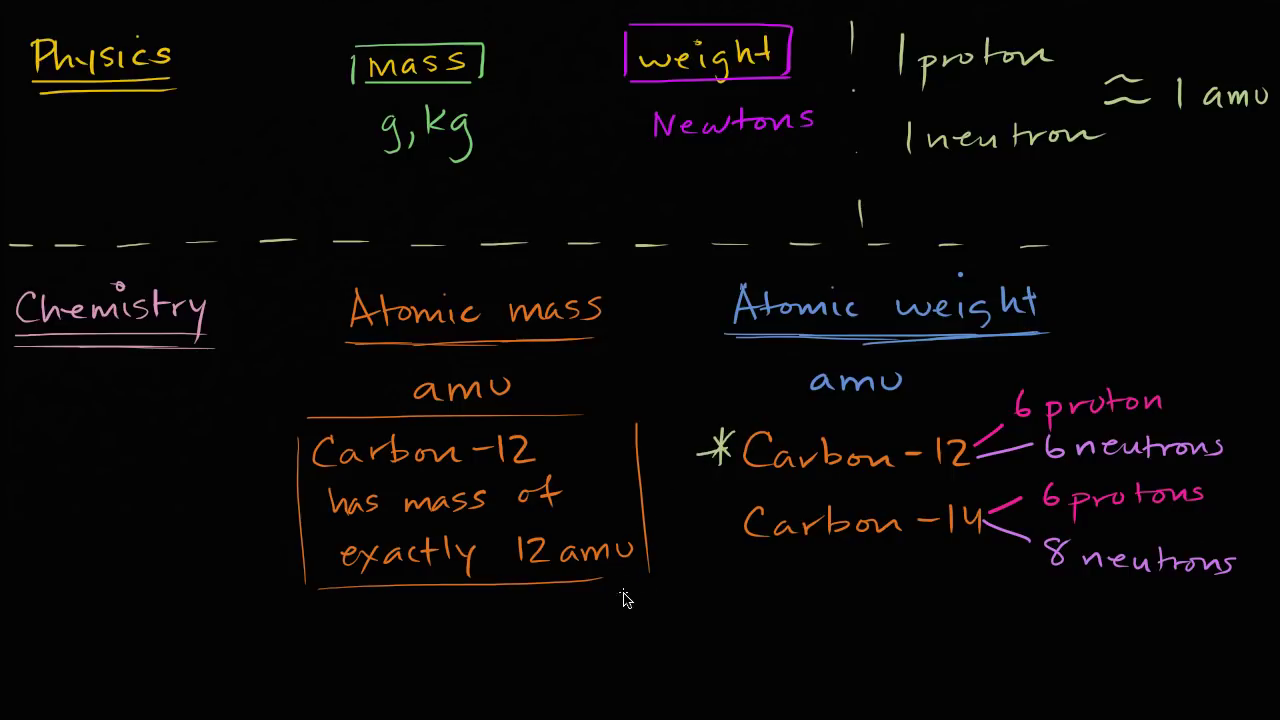 Physics
mass
g, kg
weight
Newtons
1 proton
1 neutron
≈ 1 amu
Chemistry
Atomic mass
amu
Carbon-12
has mass of
exactly 12 amu
Atomic weight
amu
* Carbon-12
6 proton
6 neutrons
Carbon-14
6 protons
8 neutrons